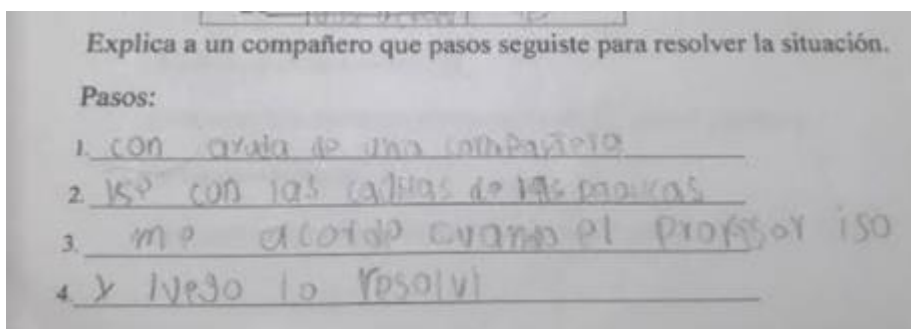 Explica a un compañero que pasos seguiste para resolver la situación.
Pasos:
1. con de una compañera
2. ise con las de las
3. me acorde cuando el profesor iso
4. y luego lo resolvi